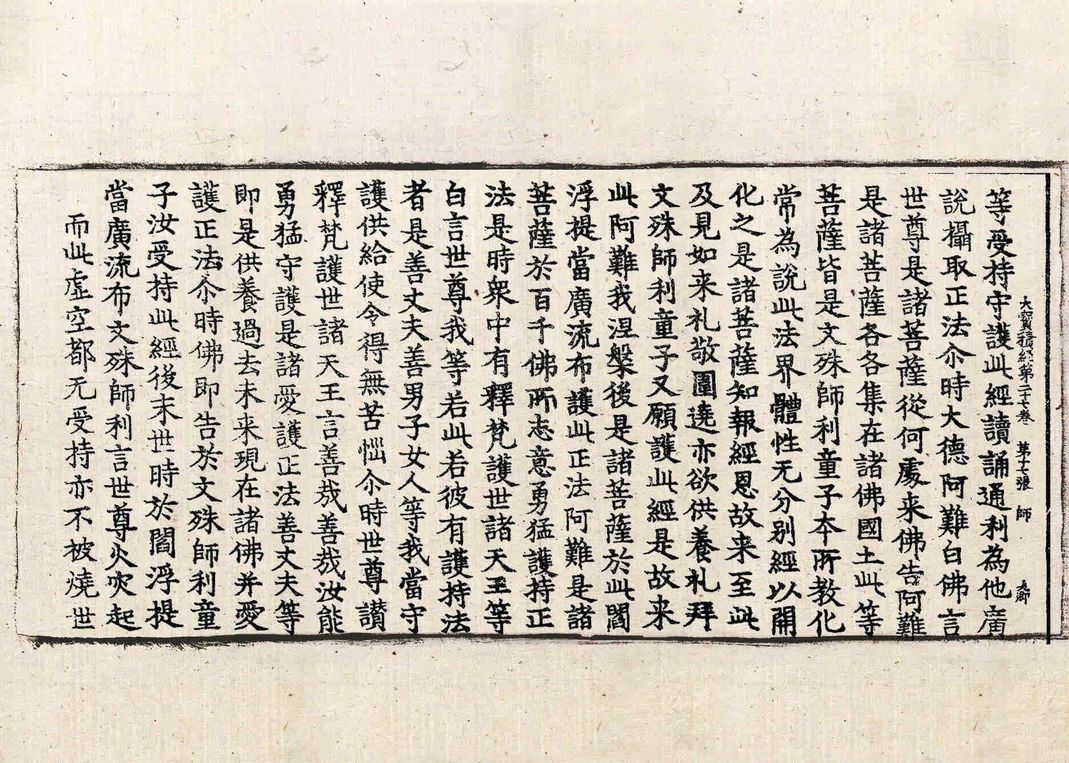 大寶積經第二十七卷 第十七張 師
等受持守護此經讀誦通利為他廣
說攝取正法尒時大德阿難白佛言
世尊是諸菩薩從何處来佛告阿難
是諸菩薩各各集在諸佛國土此等
菩薩皆是文殊師利童子本所教化
常為說此法界體性无分别經以開
化之是諸菩薩知報經恩故来至此
及見如来礼敬圍遶亦欲供養礼拜
文殊師利童子又願護此經是故来
此阿難我涅槃後是諸菩薩於此閻
浮提當廣流布護此正法阿難是諸
菩薩於百千佛所志意勇猛護持正
法是時衆中有釋梵護世諸天王等
白言世尊我等若此若彼有護持法
者是善丈夫善男子女人等我當守
護供給使令得無苦惱尒時世尊讃
釋梵護世諸天王言善哉善哉汝能
勇猛守護是諸愛護正法善丈夫等
即是供養過去未来現在諸佛并愛
護正法尒時佛即告於文殊師利童
子汝受持此經後末世時於閻浮提
當廣流布文殊師利言世尊火灾起
而此虚空都无受持亦不被燒世